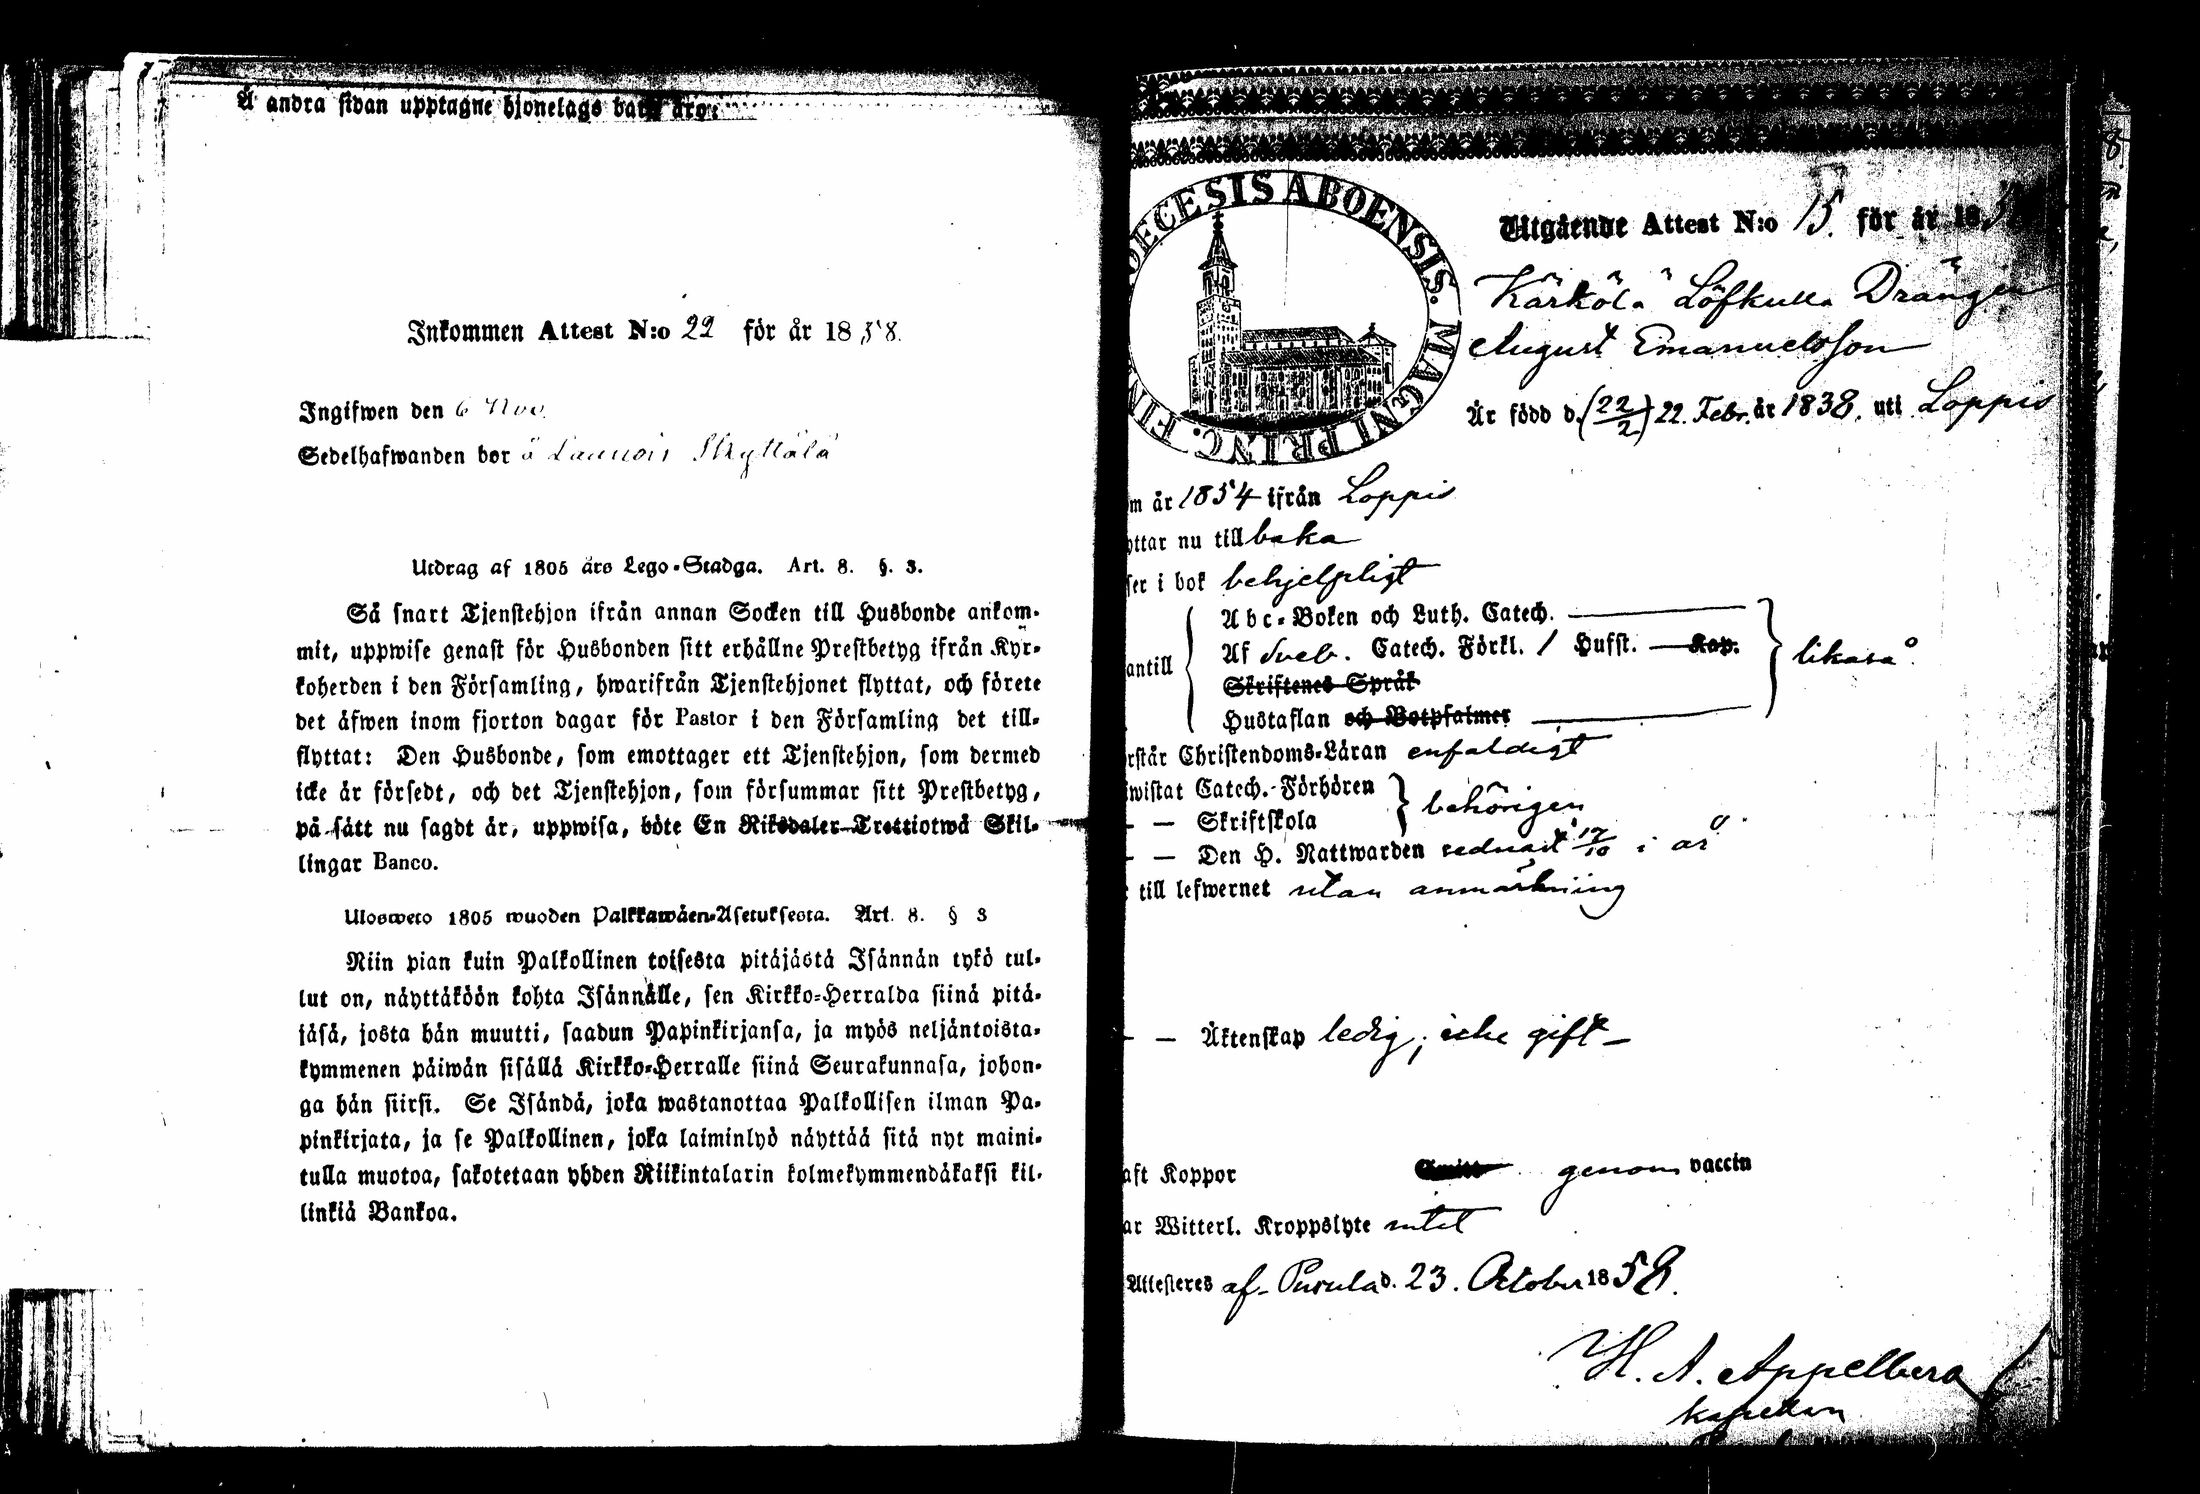 Å andra sidan upptagne hjonelags barn äro:
Inkommen Attest N:o 22 för år 1858.
Ingifwen den 6 Nov.
Sedelhafwanden bor å Launois Skyttälä
Utdrag af 1805 års Lego-Stadga. Art. 8. §. 3.
Så snart Tjenstehjon ifrån annan Socken till Husbonde ankom-
mit, uppwise genast för Husbonden sitt erhållne Prestbetyg ifrån Kyr-
koherden i den Församling, hwarifrån Tjenstehjonet flyttat, och förete
det äfwen inom fjorton dagar för Pastor i den Församling det till-
flyttat: Den Husbonde, som emottager ett Tjenstehjon, som dermed
icke är försedt, och det Tjenstehjon, som försummar sitt Prestbetyg,
på sätt nu sagdt är, uppwisa, böte En Riksdaler Trettiotwå Skil-
lingar Banco.
Ulosweto 1805 wuoden Palkkawäen-Asetuksesta. Art. 8. § 3
Niin pian kuin Palkollinen toisesta pitäjästä Isännän tykö tul-
lut on, näyttäköön kohta Isännälle, sen Kirkko-Herralda siinä pitä-
jäsä, josta hän muutti, saadun Papinkirjansa, ja myös neljäntoista-
kymmenen päiwän sisällä Kirkko-Herralle siinä Seurakunnasa, johon-
ga hän siirsi. Se Isändä, joka wastanottaa Palkollisen ilman Pa-
pinkirjata, ja se Palkollinen, joka laiminlyö näyttää sitä nyt maini-
tulla muotoa, sakotetaan yhden Riikintalarin kolmekymmendäkaksi kil-
linkiä Bankoa.
DIOECESIS ABOENSIS. MAGNI PRINC. FIN
Utgående Attest N:o 15. för år 18
Kärkölä Löfkulla Drängen
August Emanuelsson
Är född d. (22/2) 22. Febr. år 1838. uti Loppis
m år 1854 ifrån Loppis
yttar nu tillbaka
ser i bok behjelpligt
antill
Abc-Boken och Luth. Catech.
Af Sveb. Catech. Förkl. / Hufst. Kap.
Skriftenes Språk
Hustaflan och Botpsalmer
likaså
rstår Christendoms-Läran enfaldigt
wistat Catech.-Förhören
— — Skriftskola
behörigen
— — Den H. Nattwarden sednast 17/10 i år
till lefwernet utan anmärkning
— — Äktenskap ledig, icke gift
aft Koppor genom vaccin
ar Witterl. Kroppslyte intet
Attesteres af Pusula d. 23. October 1858.
H. A. Appelberg
kapellan